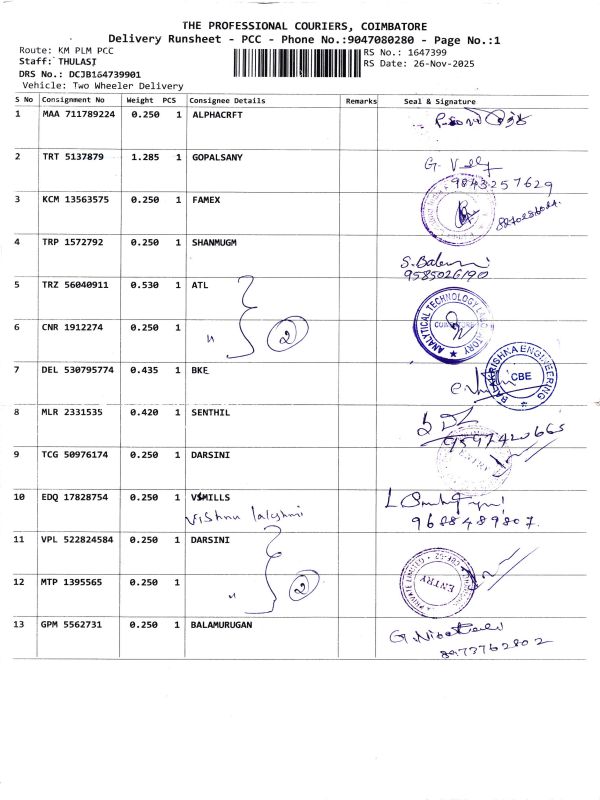 THE PROFESSIONAL COURIERS, COIMBATORE
Delivery Runsheet - PCC - Phone No.:9047080280 - Page No.:1
Route: KM PLM PCC
RS No.: 1647399
Staff: THULASI
RS Date: 26-Nov-2025
DRS No.: DCJB164739901
Vehicle: Two Wheeler Delivery
S No Consignment No Weight PCS Consignee Details Remarks Seal & Signature
1 MAA 711789224 0.250 1 ALPHACRFT
2 TRT 5137879 1.285 1 GOPALSANY
9843257629
3 KCM 13563575 0.250 1 FAMEX
4 TRP 1572792 0.250 1 SHANMUGM
9585026190
5 TRZ 56040911 0.530 1 ATL
ANALYTICAL TECHNOLOGY LABORATORY
6 CNR 1912274 0.250 1 " 2
7 DEL 530795774 0.435 1 BKE
BALAKRISHNA ENGINEERING
CBE
8 MLR 2331535 0.420 1 SENTHIL
9597420665
9 TCG 50976174 0.250 1 DARSINI
ENTRY
10 EDQ 17828754 0.250 1 VSMILLS
Vishnu lakshmi
9688489807.
11 VPL 522824584 0.250 1 DARSINI
12 MTP 1395565 0.250 1 " 2
PRIVATE LIMITED
ENTRY
13 GPM 5562731 0.250 1 BALAMURUGAN
8973762802